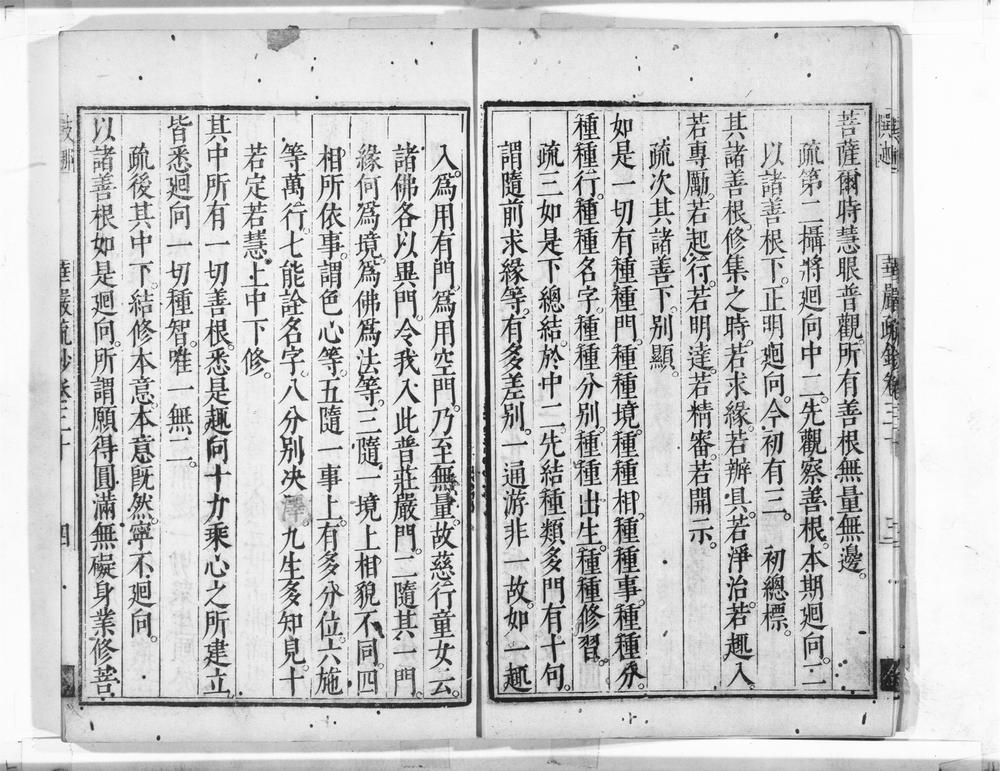 菩薩爾時慧眼普觀。所有善根無量無邊。
疏第二攝將迴向中二。先觀察善根。本期迴向。二
以諸善根下。正明迴向。今初有三。 初總標。
其諸善根。修集之時。若求緣。若辨具。若淨治。若趣入
若專勵。若起行。若明達。若精審。若開示。
疏次其諸善下。別顯。
如是一切有種種門。種種境。種種相。種種事。種種分。
種種行。種種名字。種種分別。種種出生。種種修習。
疏三如是下總結。於中二。先結種類多門有十句。
謂隨前求緣等。有多差別。一通游非一故。如一趣
入。爲用有門。爲用空門。乃至無量。故慈行童女云。
諸佛各以異門。令我入此普莊嚴門。二隨其一門
緣何爲境。爲佛爲法等。三隨一境上相貌不同。四
相所依事。謂色心等。五隨一事上。有多分位。六施
等萬行。七能詮名字。八分別決擇。九生多知見。十
若定若慧。上中下修。
其中所有一切善根。悉是趣向十力乘心之所建立
皆悉迴向一切種智。唯一無二。
疏後其中下。結修本意。本意旣然。寧不迴向。
以諸善根如是迴向。所謂願得圓滿無礙身業。修菩
華嚴疏鈔卷三十
四